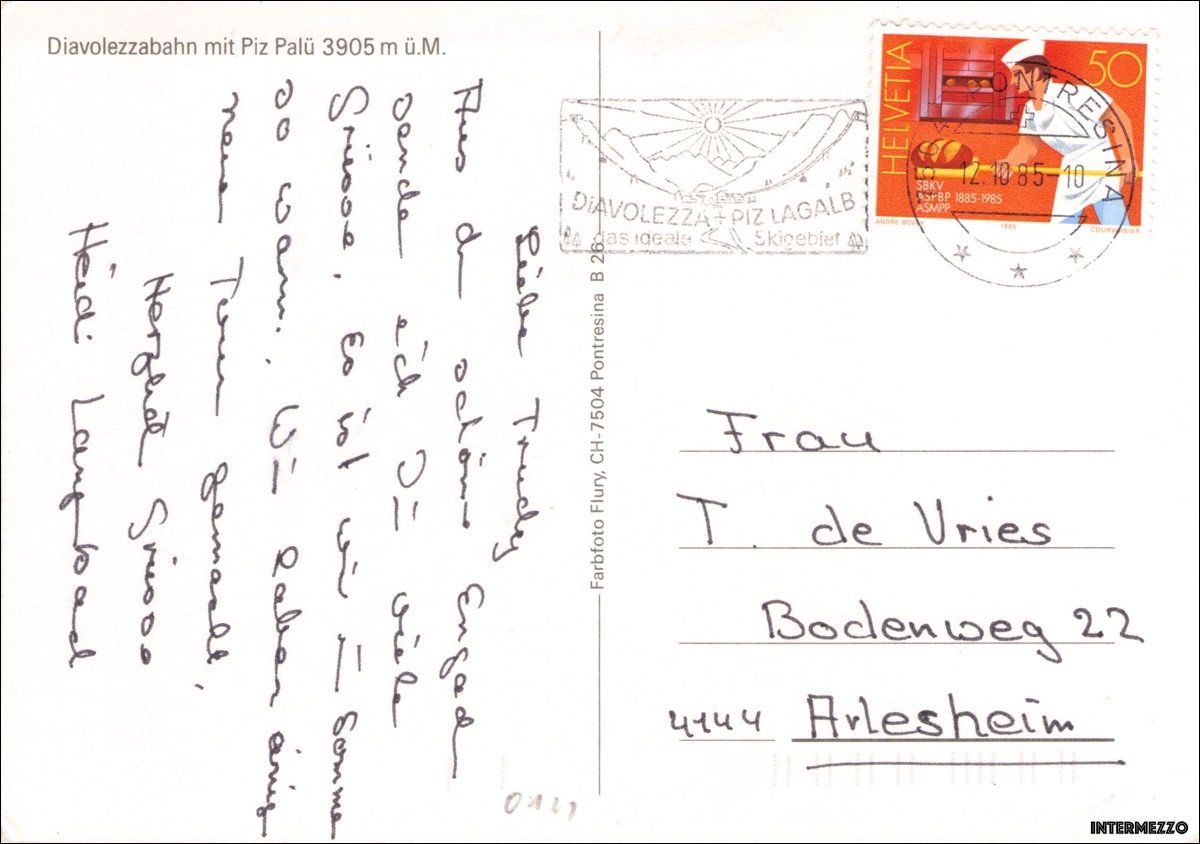 Diavolezzabahn mit Piz Palü 3905 m ü.M.
Liebe Trudy
Aus d schöne Engadin
sende ich Dir viele
Grüsse. Es ist wie im Sommer
so warm. Wir haben einige
neue Touren gemacht.
Herzliche Grüsse
Heidi
Farbfoto Flury, CH-7504 Pontresina B 28
DiAVOLEZZA + PIZ LAGALB
das ideale Skigebiet
HELVETIA 50
SBKV
ASPBP 1885-1985
ASMPP
1985
COURVOISIER
PONTRESINA
12.10.85-10
Frau
T. de Vries
Bodenweg 22
4144 Arlesheim
INTERMEZZO